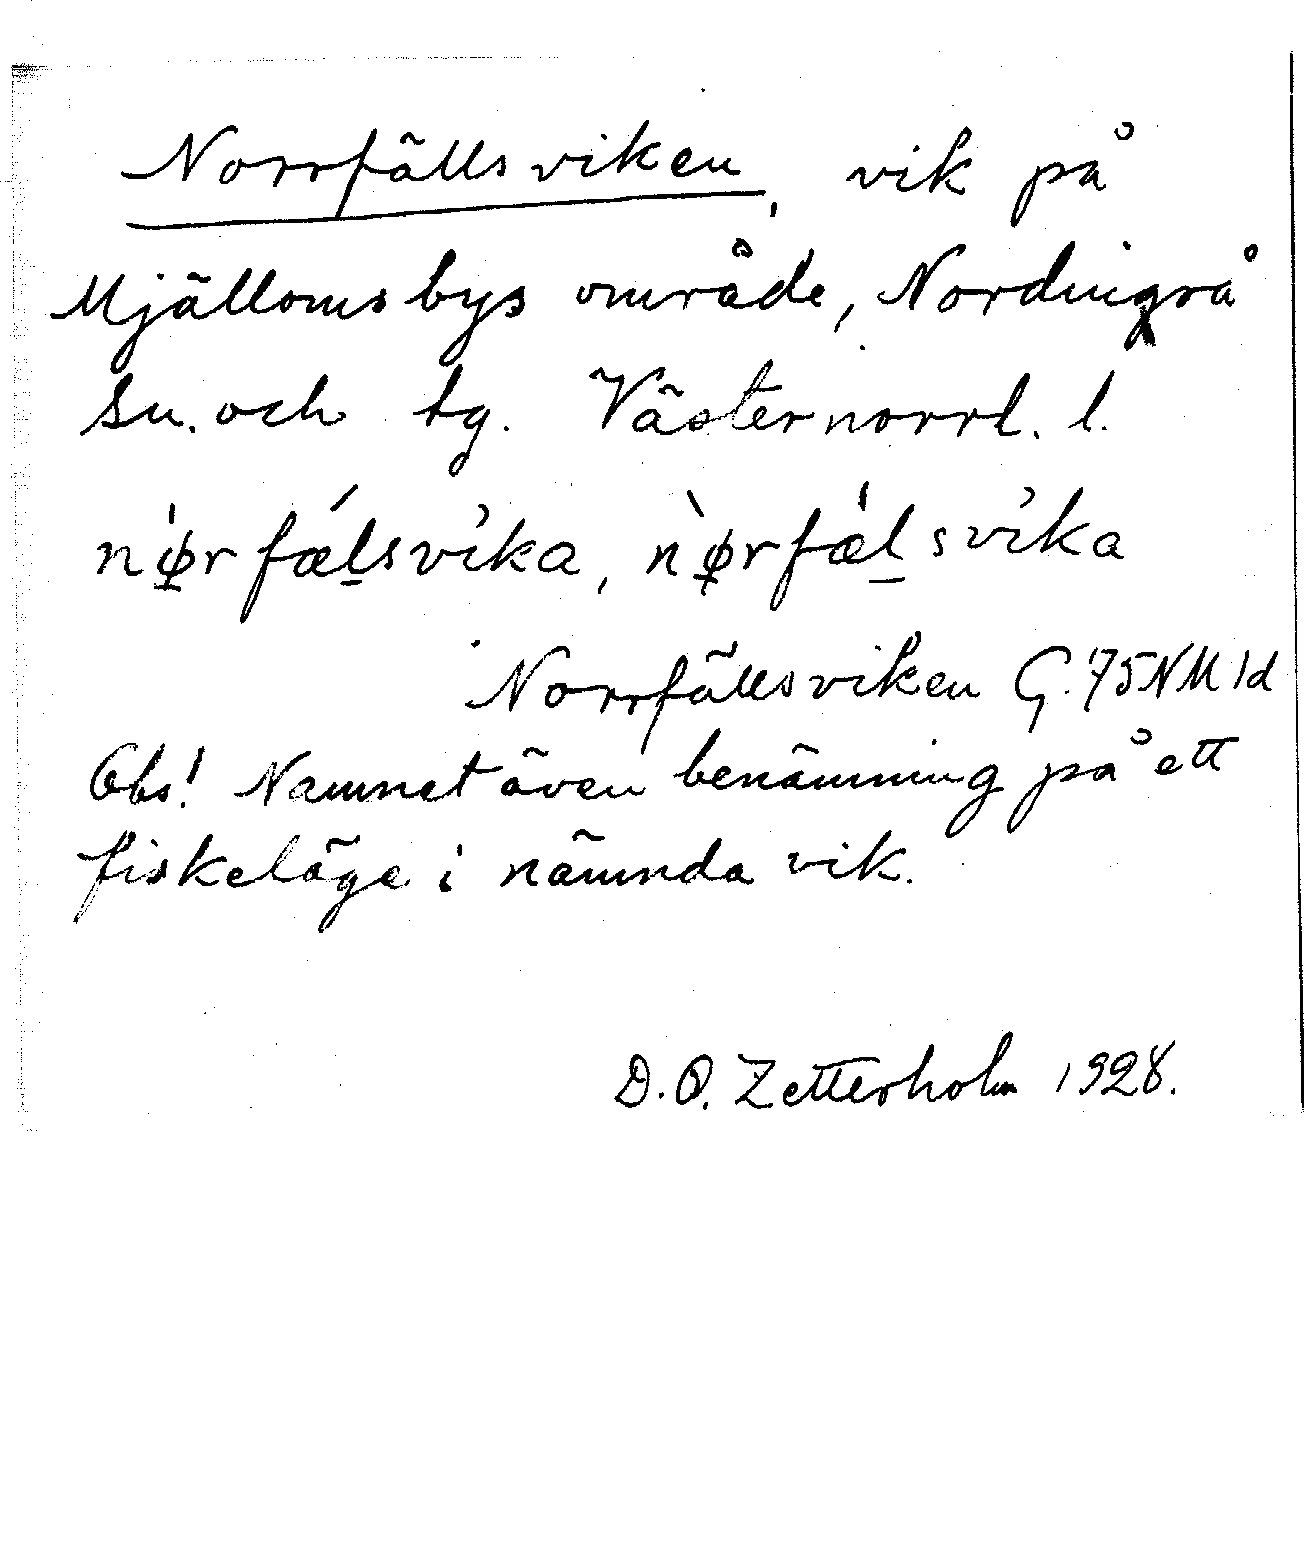 Norrfällsviken, vik på
Mjälloms bys område, Nordingrå
sn. och tg. Västernorrl. l.
nø̀rfǽlsvika, nø̀rfǽlsvika
Norrfällsviken G. 75 NM 1d
Obs! Namnet även benämning på ett
fiskeläge i nämnda vik.
D. O. Zetterholm 1928.